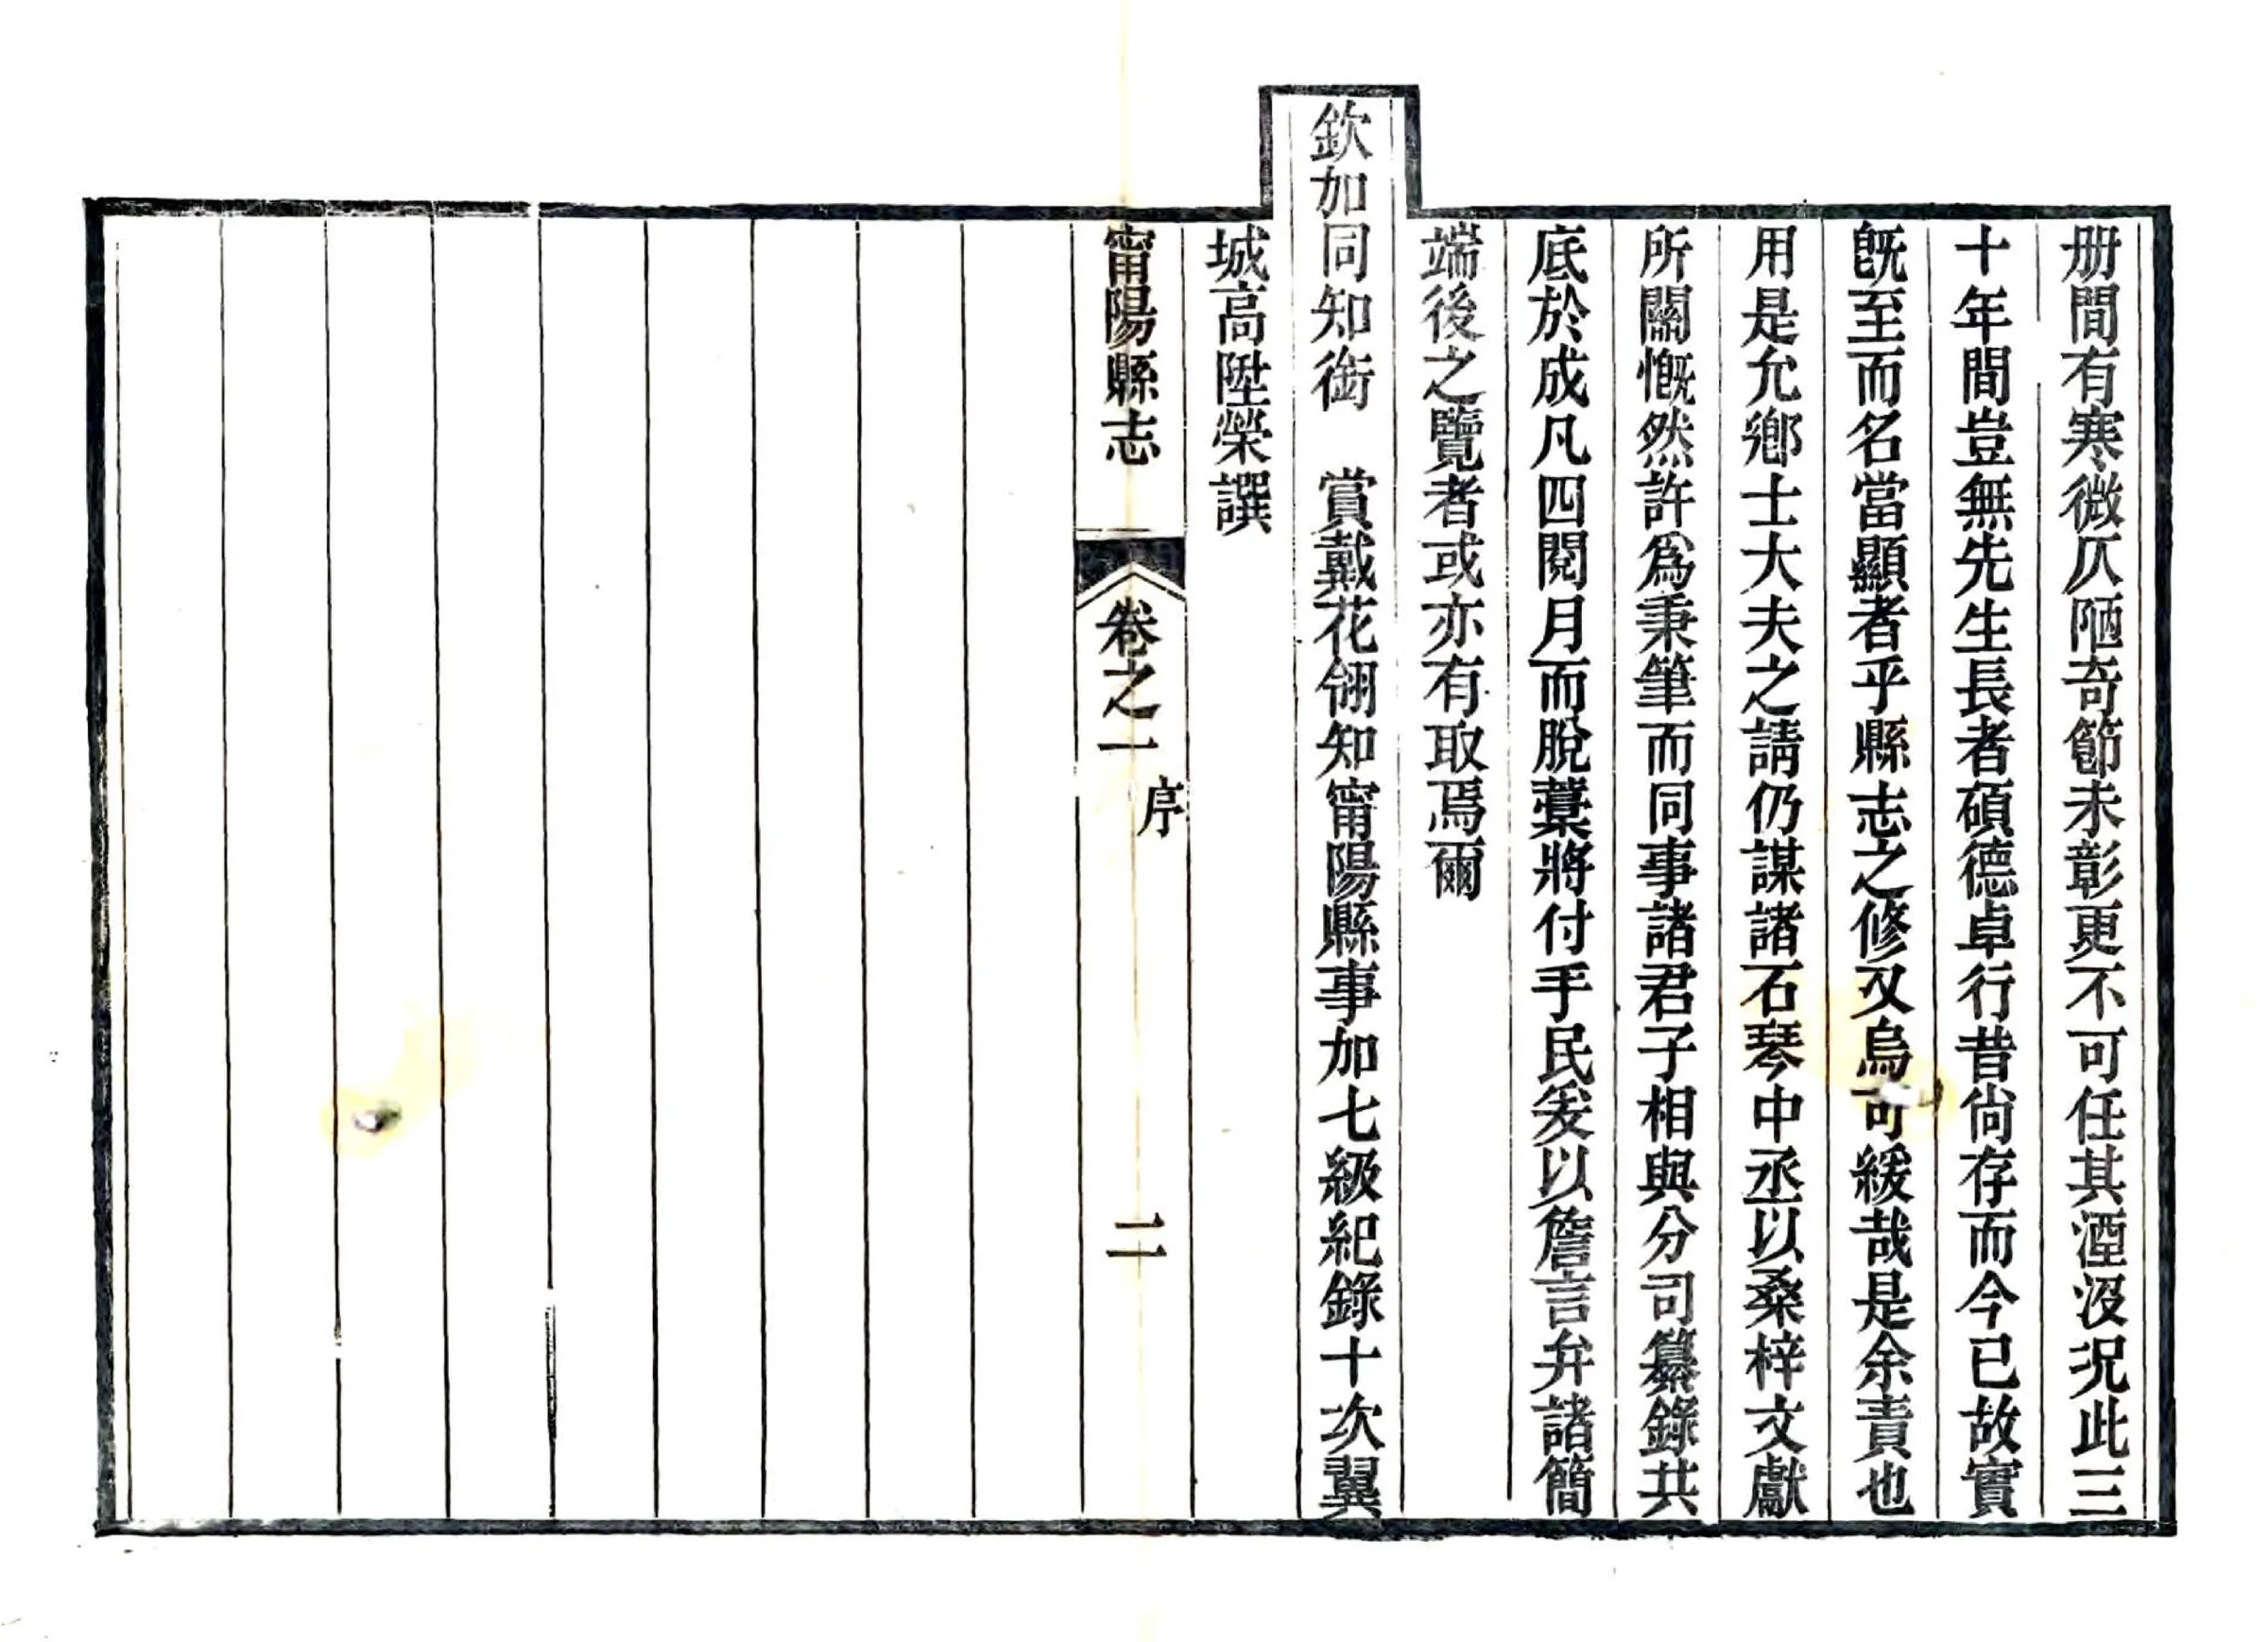 册間有寒微仄陋奇節未彰更不可任其湮沒況此三
十年間豈無先生長者碩德卓行昔尙存而今已故實
旣至而名當顯者乎縣志之修又烏可緩哉是余責也
用是允鄕士大夫之請仍謀諸石琴中丞以桑梓文獻
所關慨然許爲秉筆而同事諸君子相與分司纂錄共
底於成凡四閱月而脫藁將付手民爰以詹言弁諸簡
端後之覽者或亦有取焉爾
欽加同知銜　賞戴花翎知甯陽縣事加七級紀錄十次翼
城高陞榮譔
甯陽縣志　卷之一　序　二